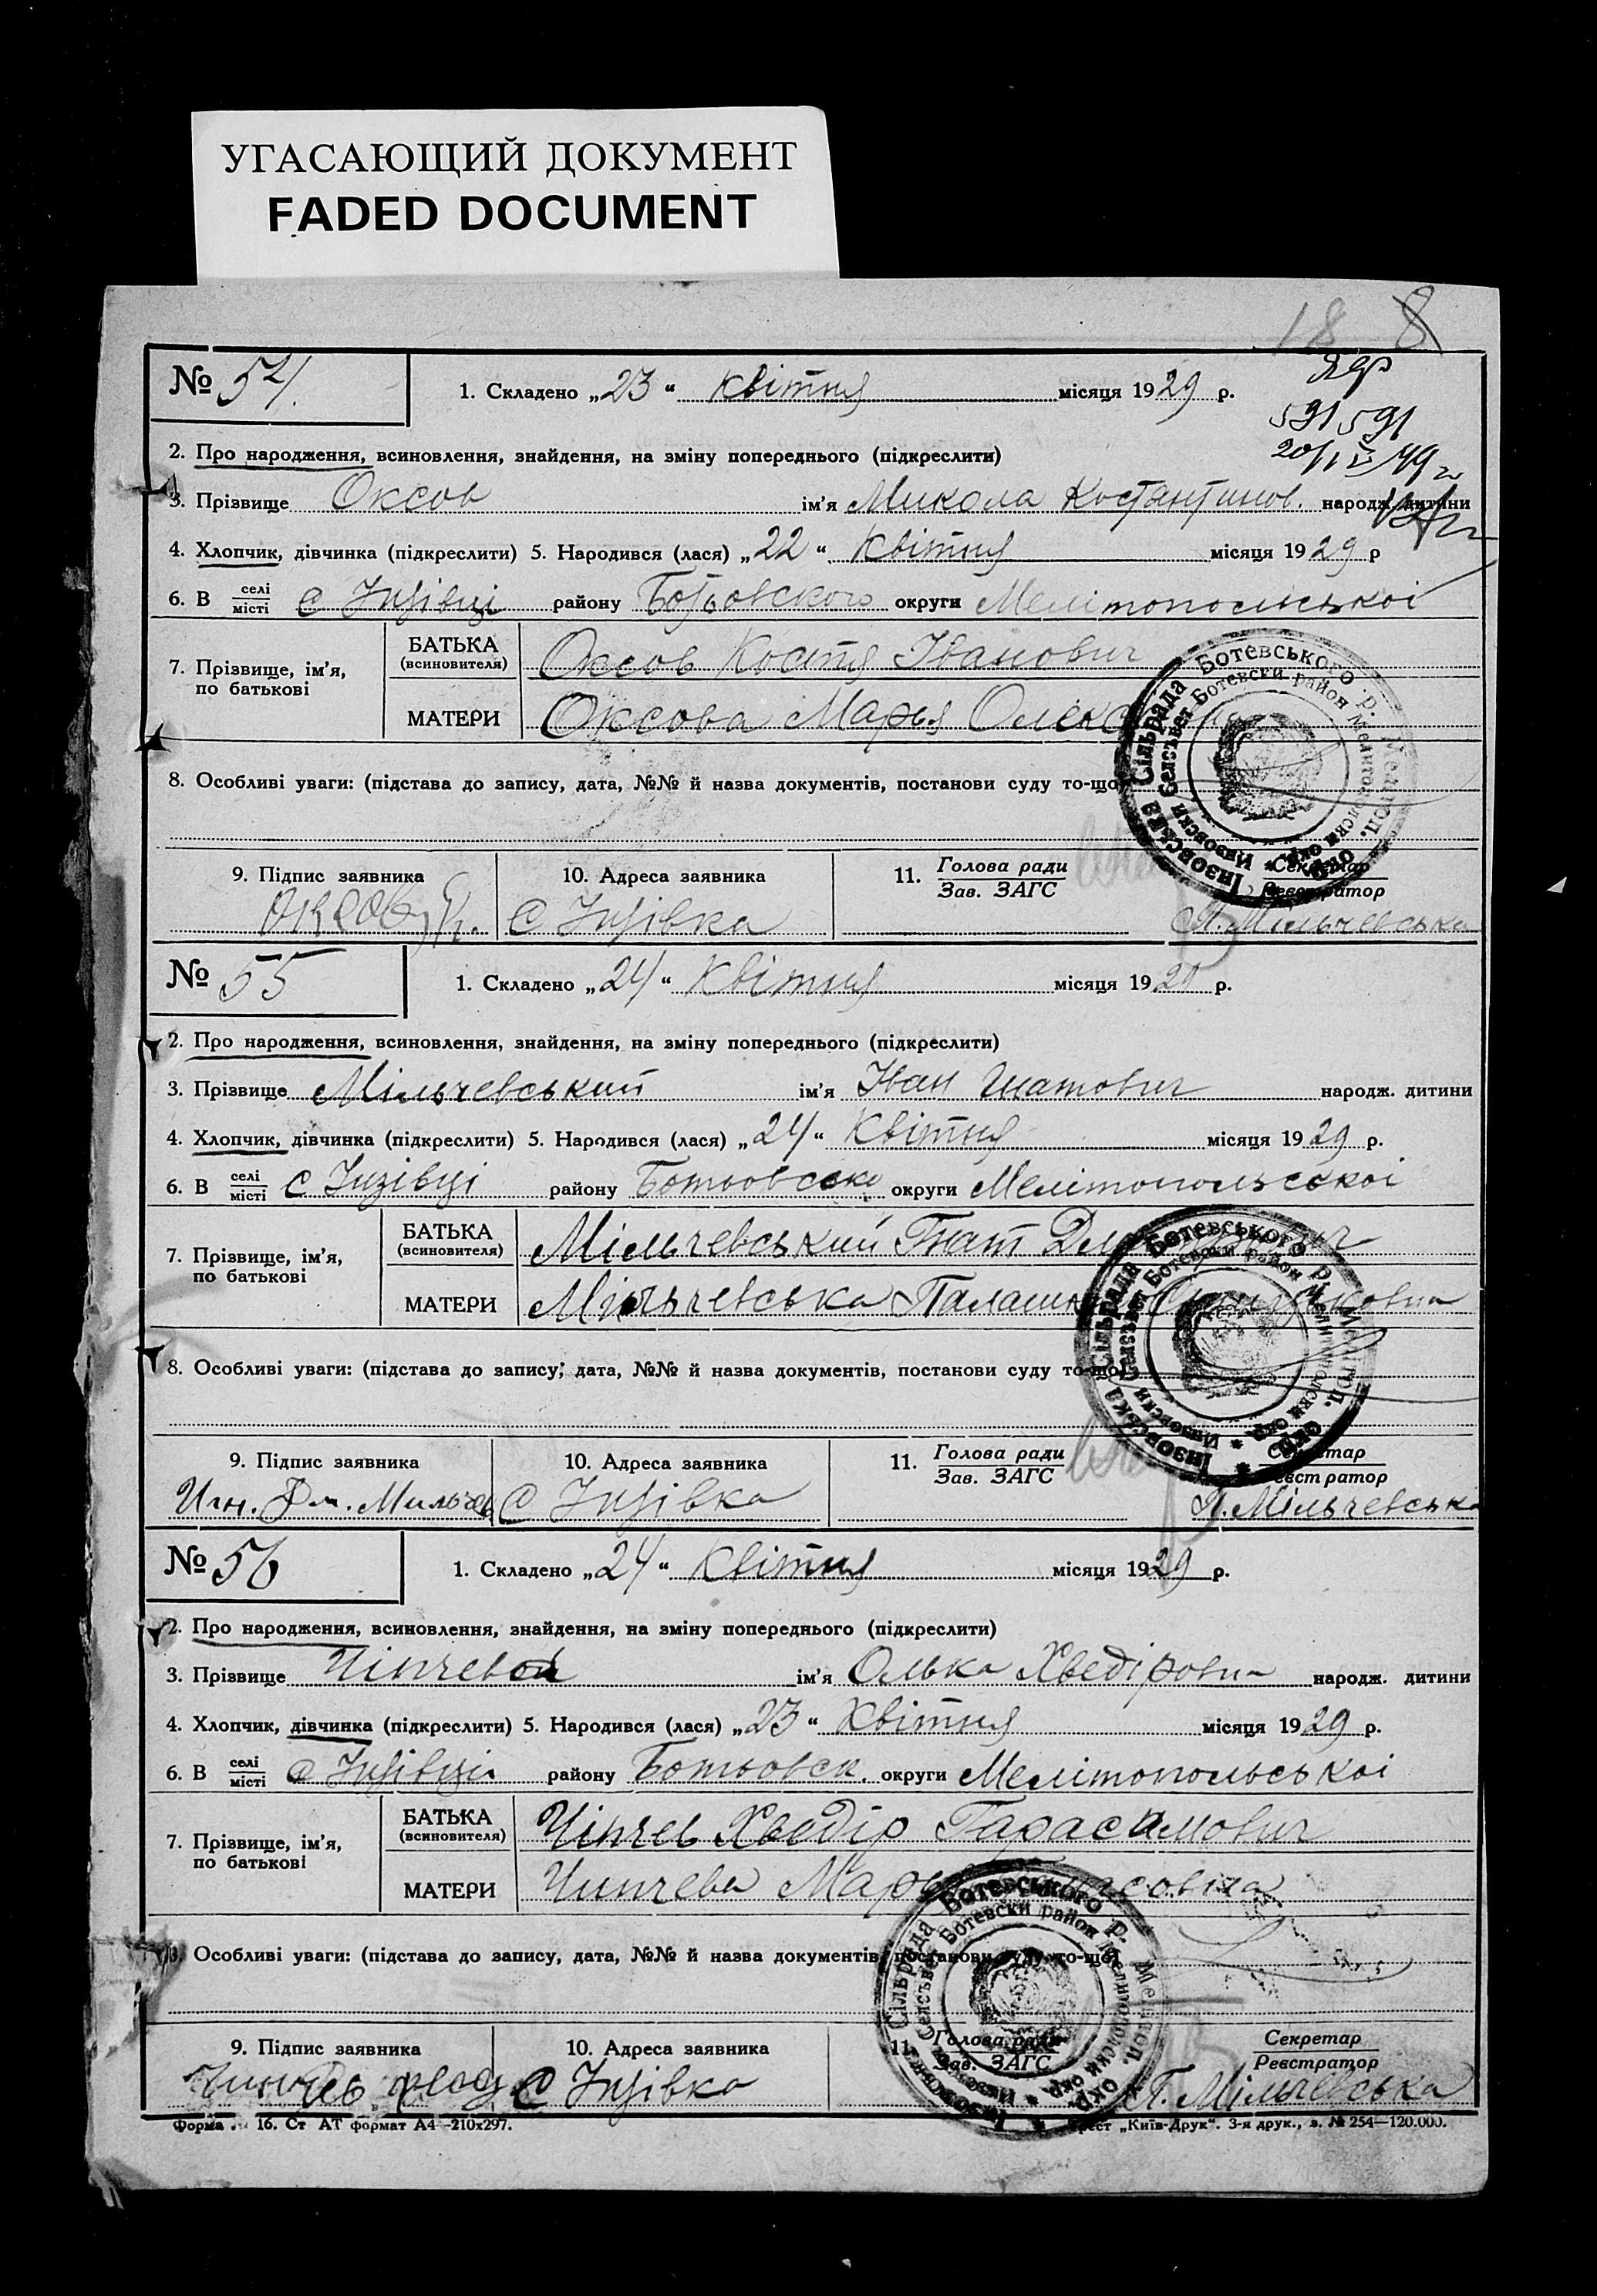 УГАСАЮЩИЙ ДОКУМЕНТ
FADED DOCUMENT
18 8
№ 54. 1. Складено „23“ квітня місяця 1929 р.
591 591
2. Про народження, всиновлення, знайдення, на зміну попереднього (підкреслити)
20/IV 49 г
3. Прізвище Оксов ім'я Микола Костянтинов. народж. дитини
4. Хлопчик, дівчинка (підкреслити) 5. Народився (лася) „22“ Квітня місяця 1929 р
6. В селі/місті с Інзівці району Ботьовского округи Мелітопольської
7. Прізвище, ім'я, по батькові БАТЬКА (всиновителя) Оксов Костя Іванович
МАТЕРИ Оксова Марья
8. Особливі уваги: (підстава до запису, дата, №№ й назва документів, постанови суду то-що)
Інзовська Сільрада Ботевського р. Мелітоп. окр.
Инзовски Селсъвет Ботевски район Мелитополски окр.
9. Підпис заявника 10. Адреса заявника 11. Голова ради Секретар
Зав. ЗАГС Реєстратор
Оксов К. С Інзівка П. Мільчевська
№ 55 1. Складено „24“ Квітня місяця 1929 р.
2. Про народження, всиновлення, знайдення, на зміну попереднього (підкреслити)
3. Прізвище Мільчевський ім'я Іван Гнатович народж. дитини
4. Хлопчик, дівчинка (підкреслити) 5. Народився (лася) „24“ Квітня місяця 1929 р.
6. В селі/місті с Інзівці району Ботьовско округи Мелітопольської
7. Прізвище, ім'я, по батькові БАТЬКА (всиновителя) Мільчевський Гнат
МАТЕРИ Мільчевська
8. Особливі уваги: (підстава до запису, дата, №№ й назва документів, постанови суду то-що)
Інзовська Сільрада Ботевського р. Мелітоп. окр.
Инзовски Селсъвет Ботевски район Мелитополски окр.
9. Підпис заявника 10. Адреса заявника 11. Голова ради Секретар
Зав. ЗАГС Реєстратор
Игн. Дм. Мильчев С Інзівка П. Мільчевська
№ 56 1. Складено „24“ Квітня місяця 1929 р.
2. Про народження, всиновлення, знайдення, на зміну попереднього (підкреслити)
3. Прізвище Чіпчева ім'я Олька Хведіровна народж. дитини
4. Хлопчик, дівчинка (підкреслити) 5. Народився (лася) „23“ Квітня місяця 1929 р.
6. В селі/місті с Інзівці району Ботьовск. округи Мелітопольської
7. Прізвище, ім'я, по батькові БАТЬКА (всиновителя) Чіпчев Хведір Гарасимович
МАТЕРИ Чипчева Марья
8. Особливі уваги: (підстава до запису, дата, №№ й назва документів, постанови суду то-що)
Інзовська Сільрада Ботевського р. Мелітоп. окр.
Инзовски Селсъвет Ботевски район Мелитополски окр.
9. Підпис заявника 10. Адреса заявника 11. Голова ради Секретар
Зав. ЗАГС Реєстратор
С Інзівка П. Мільчевська
Форма 16. Ст АТ формат А4—210х297. Трест „Київ-Друк“. 3-я друк., з. № 254—120.000.